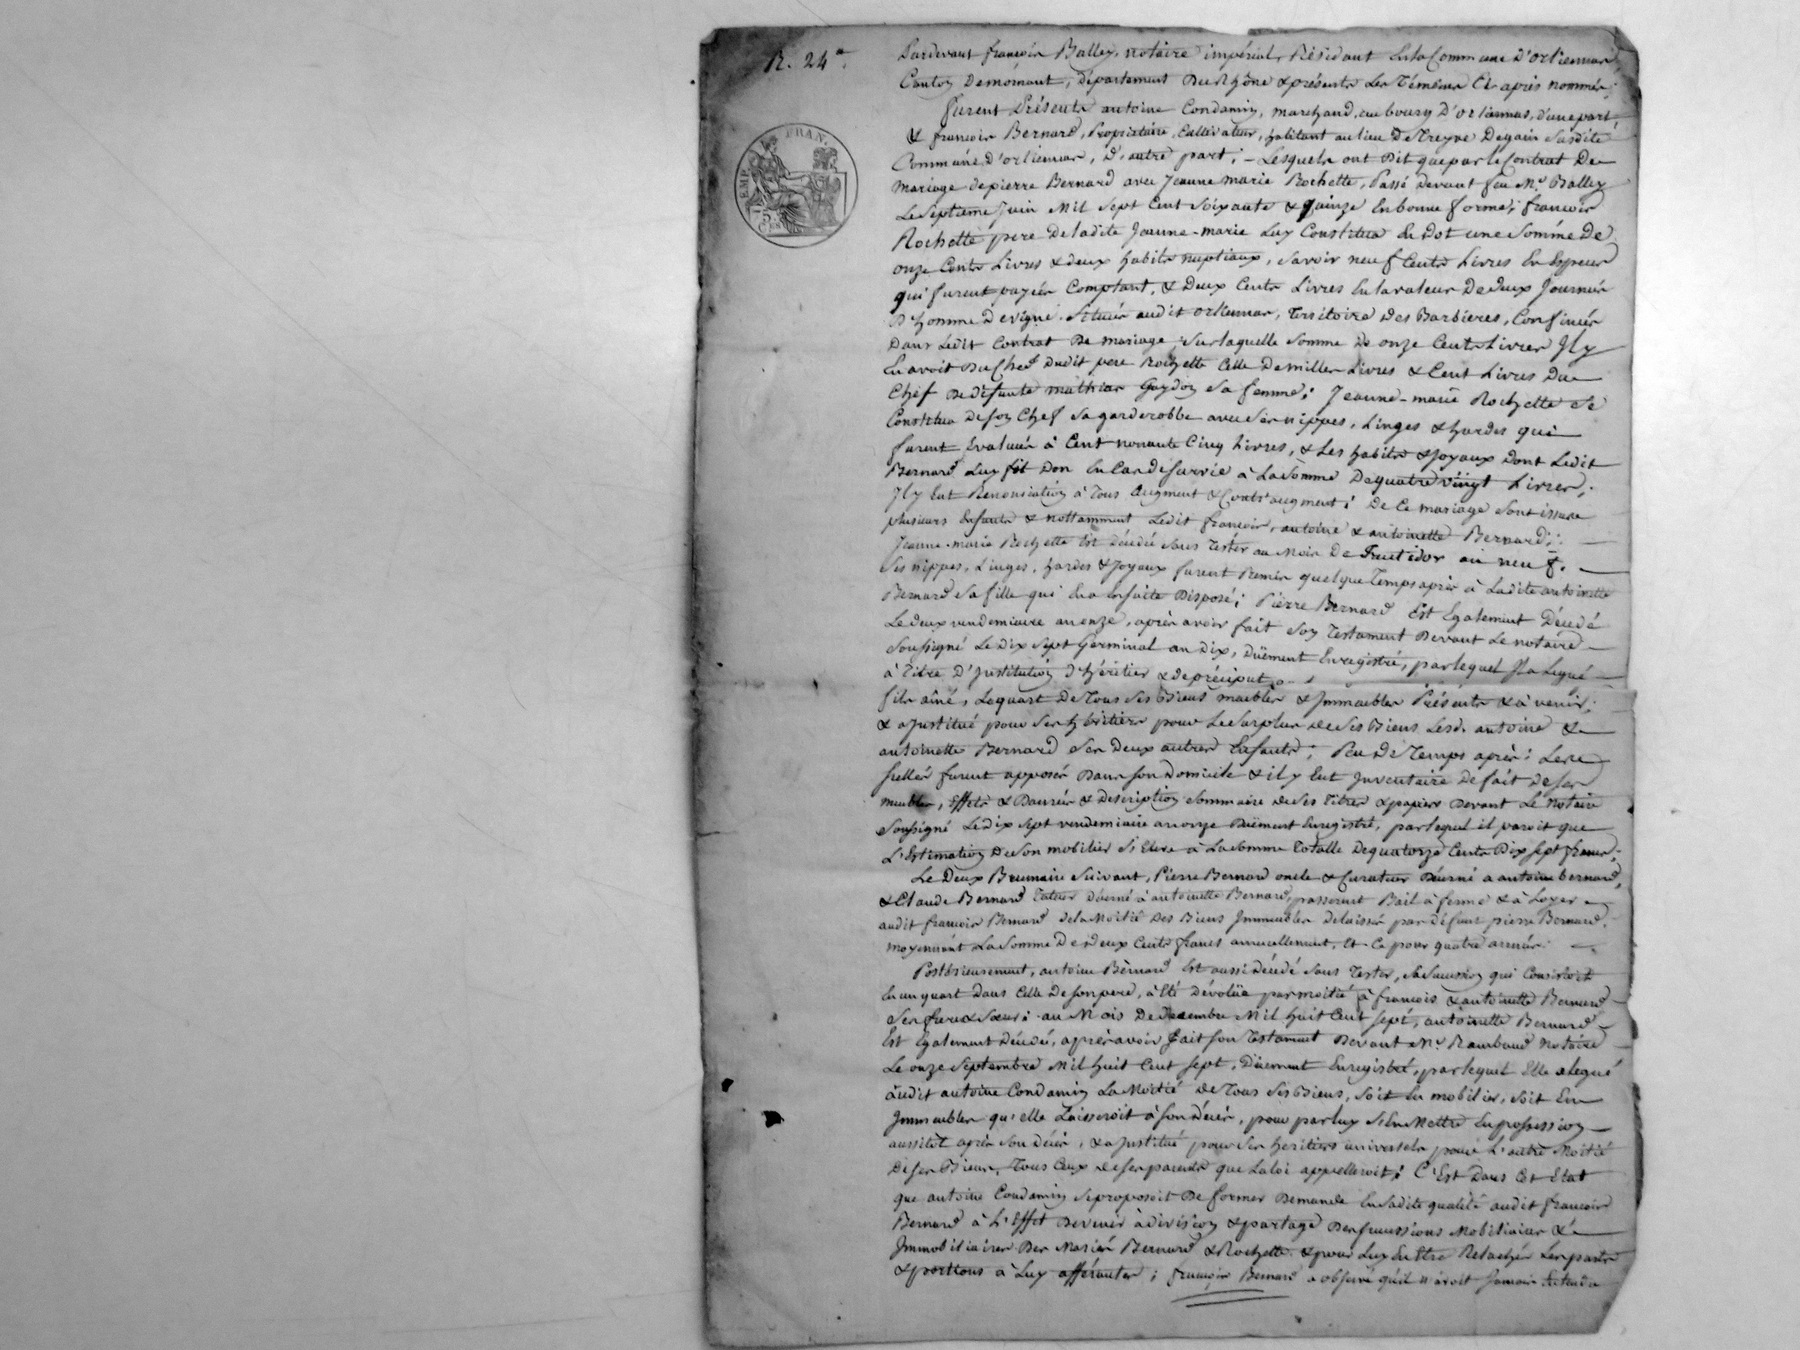 R. 24.e
EMP. FRAN.
75
C.mes
Pardevant françois Balley, notaire impérial, Résidant en la Commune d'orliennas,
Canton demornant, département Du Rhône & présents Les Témoins Ci après nommés;
furent Présents antoine Condamin, marchand, au bourg d'orliennas, d'une part
& françois Bernard, Propriétaire, Cultivateur, habitant au lieu de Treyve Degain Susdite
Commune d'orliennas, d'autre part; – Lesquels ont dit que par le Contrat De
mariage de pierre Bernard avec Jeanne marie Rochette, Passé devant feu M.e Balley
Le Septieme Juin Mil Sept Cent Soixante & quinze En bonne forme, françois
Rochette pere De ladite Jeanne-marie Luy Constitua En dot une Somme De
onze Cents Livres & deux habits nuptiaux, Savoir neuf Cents Livres En Especes
qui furent payées Comptant, & Deux Cents Livres En la valeur De deux Journées
D'homme De vigne Situées audit orliennas, Territoire Des Barbieres, Confinées
Dans Ledit Contrat De mariage; Sur laquelle Somme De onze Cents Livres Il y
En avoit Du Chef Dudit pere Rochette Celle De mille Livres & Cent Livres Du
Chef De défunte mathias Gaydon Sa femme; Jeanne-marie Rochette Se
Constitua De son Chef Sa garderobbe avec Ses nippes, Linges & hardes qui
furent Evalués à Cent nonante Cinq Livres, & Les habits & Joyaux Dont Ledit
Bernard Luy fit Don En Cas de survie à La Somme De quatre vingt Livres;
Il y Eut Renonciation à Tous augment & Contr'augment; De Ce mariage Sont issus
plusieurs Enfants & nottamment Ledit françois, antoine & antoinette Bernard;
Jeanne-marie Rochette Est décédée Sans Tester au Mois De Fructidor an neuf.
Ses nippes, Linges, hardes & Joyaux furent Remis quelque Temps après à Ladite antoinette
Bernard Sa fille qui En a Ensuite Disposé; Pierre Bernard Est Egalement Décédé
Le deux vendemiaire an onze, après avoir fait Son Testament Devant Le notaire
Soussigné Le Dix Sept Germinal an Dix, Düement Enregistré, par lequel Il a Legué
à Titre D'Institution d'héritier & de préciput
fils aîné, Le quart De Tous Ses Biens meubles & Immeubles Présents & à venir;
& a Institué pour Ses héritiers pour Le Surplus de Ses Biens Lesd. antoine &
antoinette Bernard Ses Deux autres Enfants; Peu De Temps après; Les
Scellés furent apposés Dans son Domicile & il y Eut Inventaire De fait De Ses
meubles, Effets & Danrées & Description Sommaire de Ses Titres & papiers Devant Le Notaire
Soussigné Le dix Sept vendemiaire an onze Düement Enregistré, par lequel il paroit que
L'Estimation De Son mobilier S'Eleve à La Somme Totalle De quatorze Cents Dix Sept francs;
Le Deux Brumaire Suivant, Pierre Bernard oncle & Curateur Décerné a antoine bernard,
& Claude Bernard Tuteur décerné à antoinette Bernard, passerent Bail à ferme & à Loyer
audit françois Bernard de la Moitié Des Biens Immeubles delaissés par défunt pierre Bernard,
moyennant La Somme De Deux Cents francs annuellement, Et Ce pour quatre années.
Postérieurement, antoine Bernard Est aussi Décédé Sans Tester, Sa Succession qui Consistoit
En un quart Dans Celle De son pere, à Eté Dévolüe par moitié à françois & antoinette Bernard
Ses frere & Sœur; au Mois De Decembre Mil huit Cent Sept, antoinette Bernard
Est Egalement Décédée, après avoir fait son Testament Devant M.e Raimbaud Notaire
Le onze Septembre Mil huit Cent Sept, Düement Enregistré, par lequel Elle a Legué
audit antoine Condamin La Moitié de Tous Ses Biens, Soit En mobilier, Soit En
Immeubles qu'elle Laisseroit à son décès, pour par luy S'En Mettre En possession
aussitôt après Son décès, & a Institué pour Ses heritiers universels pour L'autre Moitié
De Ses Biens, Tous Ceux de Ses parents que La loi appelleroit; C'Est Dans Cet Etat
que antoine Condamin Se proposoit De former Demande En Sadite qualité audit françois
Bernard à L'Effet De venir à division & partage Des Successions Mobiliaires &
Immobiliaires Des Mariés Bernard & Rochette & pour Luy En Etre Relaché Les parts
& portions à Luy afférantes; françois Bernard a observé qu'il n'avoit Jamais Entendu